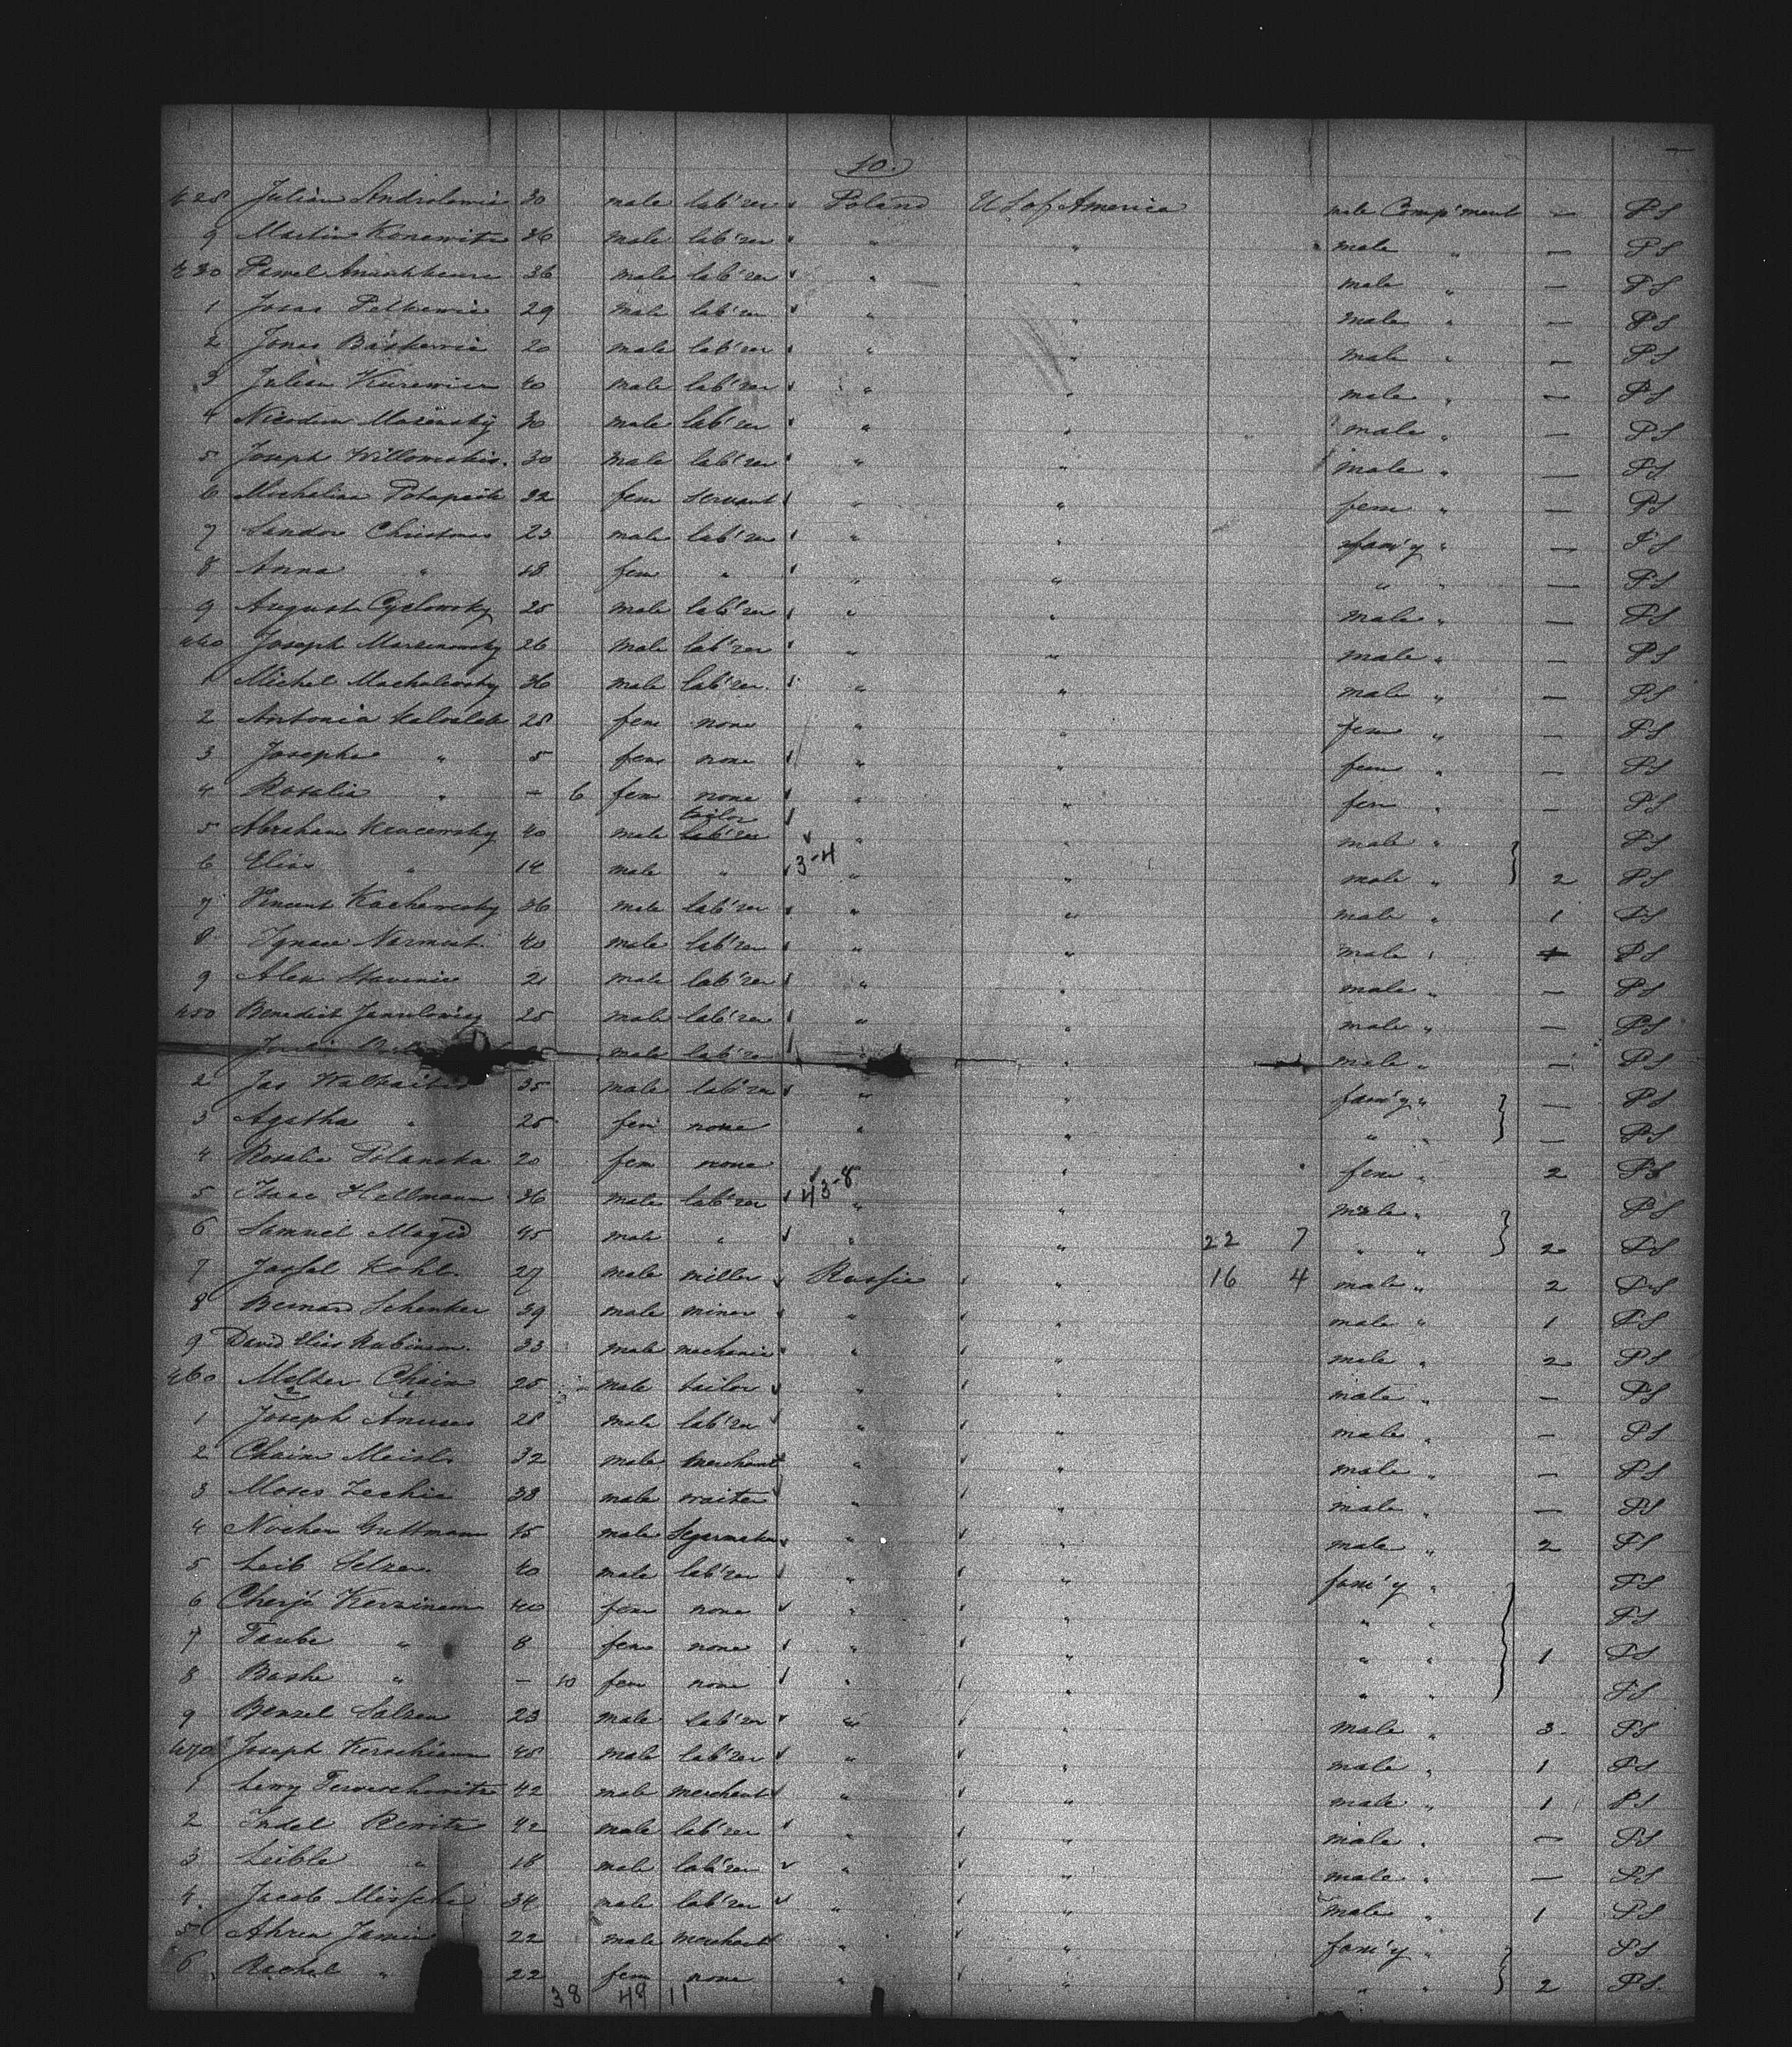 10.
428 Julian Androlowic 30 male lab'rer Poland U S of America male Comp'ment — PS
9 Martin Konewitz 36 male lab'rer " " male " — PS
430 Pawel 36 male lab'rer " " male " — PS
1 Josas Petkewic 29 male lab'rer " " male " — PS
2 Jonas Baskewic 20 male lab'rer " " male " — PS
3 Julian Kurewicz 40 male lab'rer " " male " — PS
4 Nicodem Mosinsky 30 male lab'rer " " male " — PS
5 Joseph Willomatis 30 male lab'rer " " male " — PS
6 Michalina 22 fem servant " " fem " — PS
7 Sandor Christmas 23 male lab'rer " " fam'y " — PS
8 Anna " 18 fem " " " " " — PS
9 August Cyclowsky 25 male lab'rer " " male " — PS
440 Joseph Marzinowsky 26 male lab'rer " " male " — PS
1 Michel Machalewsky 36 male lab'rer " " male " — PS
2 Antonia 28 fem none " " fem " — PS
3 Josepha " 5 fem none " " fem " — PS
4 Rosalie " — 6 fem none " " fem " — PS
5 Abraham 40 male tailor lab'rer " " male " PS
6 Elias " 14 male " 3-4 " " male " 2 PS
7 Vincent Kachewsky 36 male lab'rer " " male " 1 PS
8 Ignace Normut 40 male lab'rer " " male " PS
9 Alex 21 male lab'rer " " male " — PS
450 Benedict Janulowicz 25 male lab'rer " " male " — PS
male lab'rer " male " — PS
2 Jas 35 male lab'rer " " fam'y " — PS
3 Agatha " 25 fem none " " " " — PS
4 Rosalie Polanska 20 fem none " fem " 2 PS
5 Isaac Hellmann 36 male lab'rer 43-8 " " male " PS
6 Samuel Magid 45 male " " " 22 7 " " 2 PS
7 Jossel Kohl 27 male miller Russia " 16 4 male " 2 PS
8 Bernard Schenker 39 male miner " " male " 1 PS
9 David Elias Rubinson 33 male mechanic " " male " 2 PS
460 Meltzer Chaim 25 male tailor " " male " — PS
1 Joseph 28 male lab'rer " " male " — PS
2 Chaim Meisl 32 male merchant " " male " — PS
3 Moses 38 male waiter " " male " — PS
4 Nochem Guttmann 45 male Segarmaker " " male " 2 PS
5 Leib Selzer 40 male lab'rer " " fam'y " PS
6 40 fem none " " " " PS
7 Taube " 8 fem none " " " " 1 PS
8 Bashe " — 10 fem none " " " " PS
9 Benzel Salzen 23 male lab'rer " " male " 3 PS
470 Joseph 48 male lab'rer " " male " 1 PS
1 Lewy 42 male merchant " " male " 1 PS
2 Judel 42 male lab'rer " " male " — PS
3 Leible " 18 male lab'rer " " male " — PS
4 Jacob 34 male lab'rer " " male " 1 PS
5 Ahren 22 male merchant " " fam'y " PS
6 Rachel " 22 fem none " " " " 2 PS
38 49 11